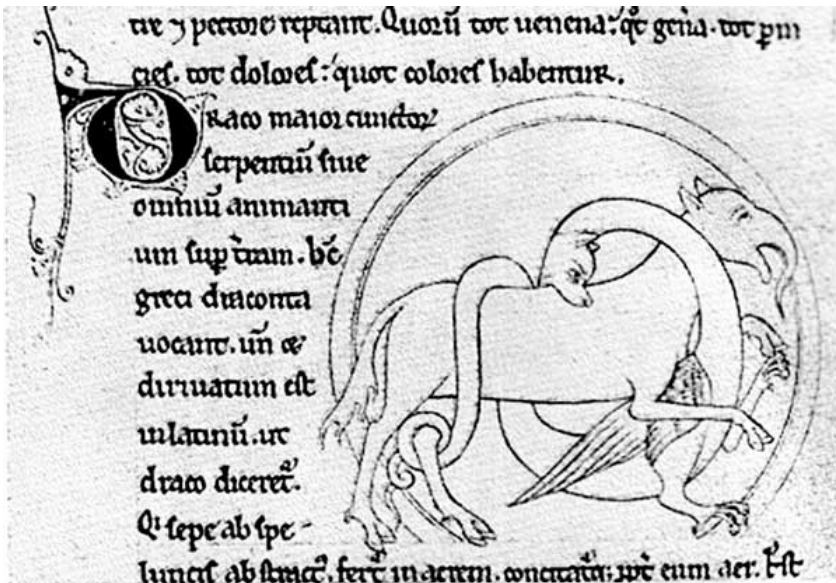 tie ⁊ pectore reptant. Quorū tot uenena: qͦt gen̄a. tot p̄ni
cies. tot dolores: quot colores habentur.
Draco maior cunctoꝝ
serpentiū siue
omniū animanti
um sup̄ t̄ram. hc̄
greci draconta
uocant. un̄ &
diriuatum est
inlatinū. ut
draco diceret᷑.
Qͥ sepe ab spe-
luncis abstract᷒. fert᷑ in aerem. concitat᷑q;